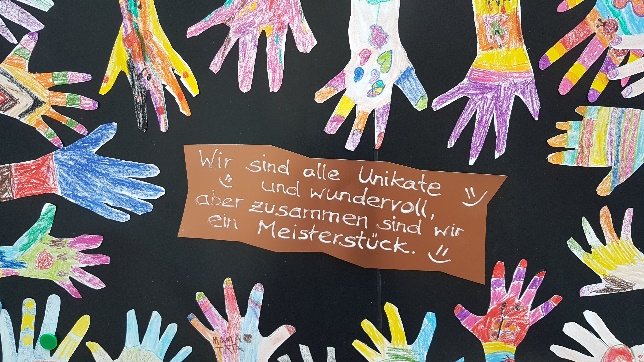 Wir sind alle Unikate
und wundervoll,
aber zusammen sind wir
ein Meisterstück.